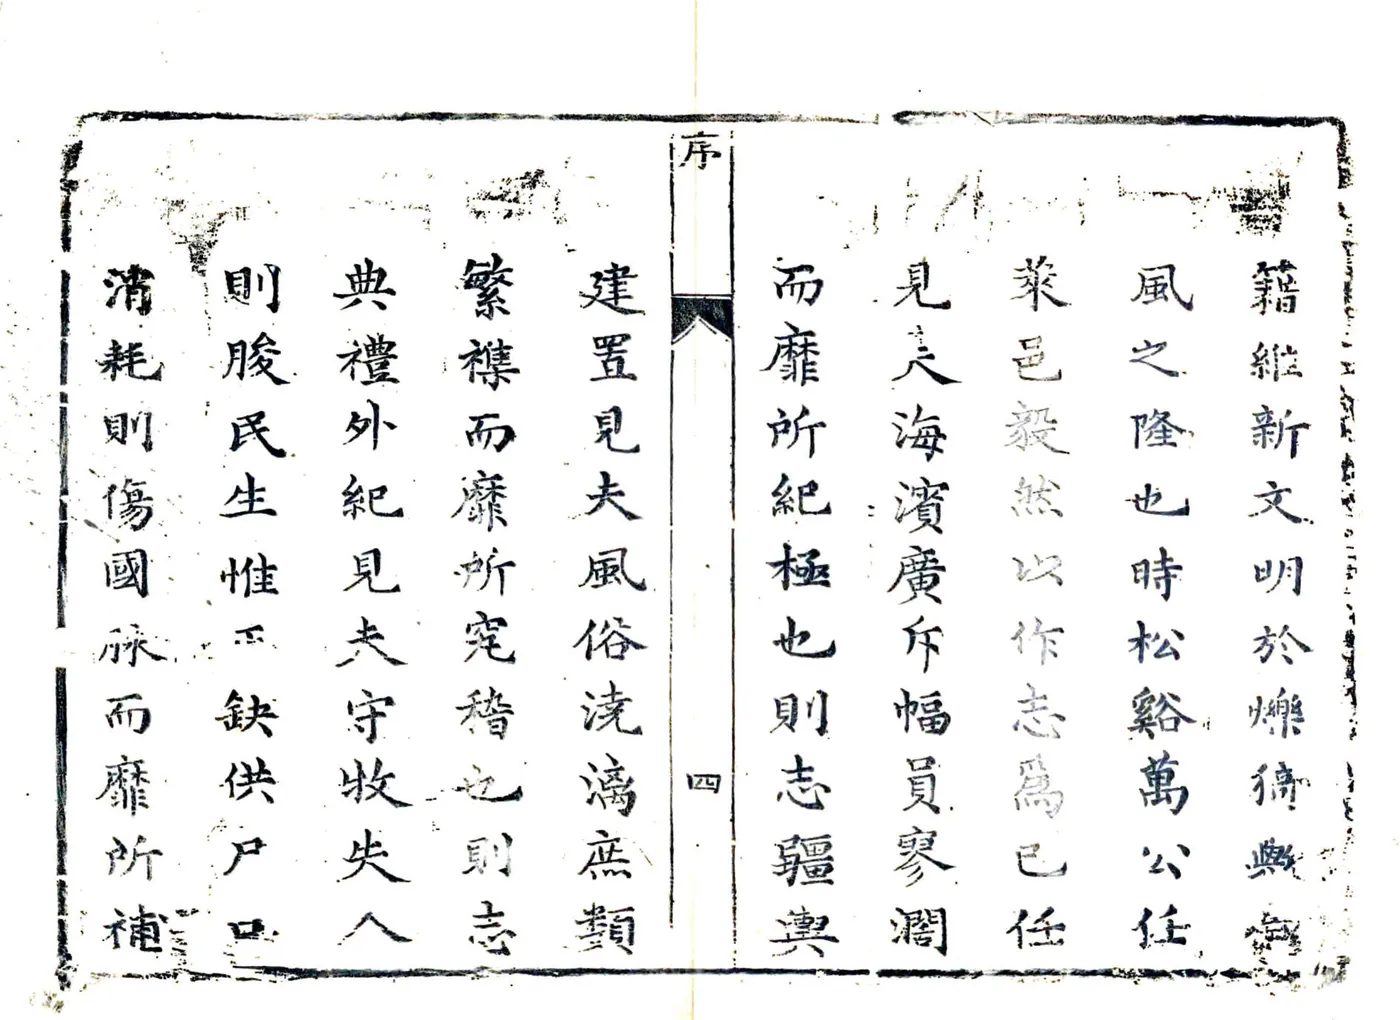 籍維新文明於爍猗歟
風之隆也時松谿萬公任
萊邑毅然以作志爲已任
見夫海濱廣斥幅員寥濶
而靡所紀極也則志疆輿
序
四
建置見夫風俗澆漓庶類
繁襍而靡所究稽也則志
典禮外紀見夫守牧失人
則朘民生惟正缺供戶口
消耗則傷國脉而靡所補